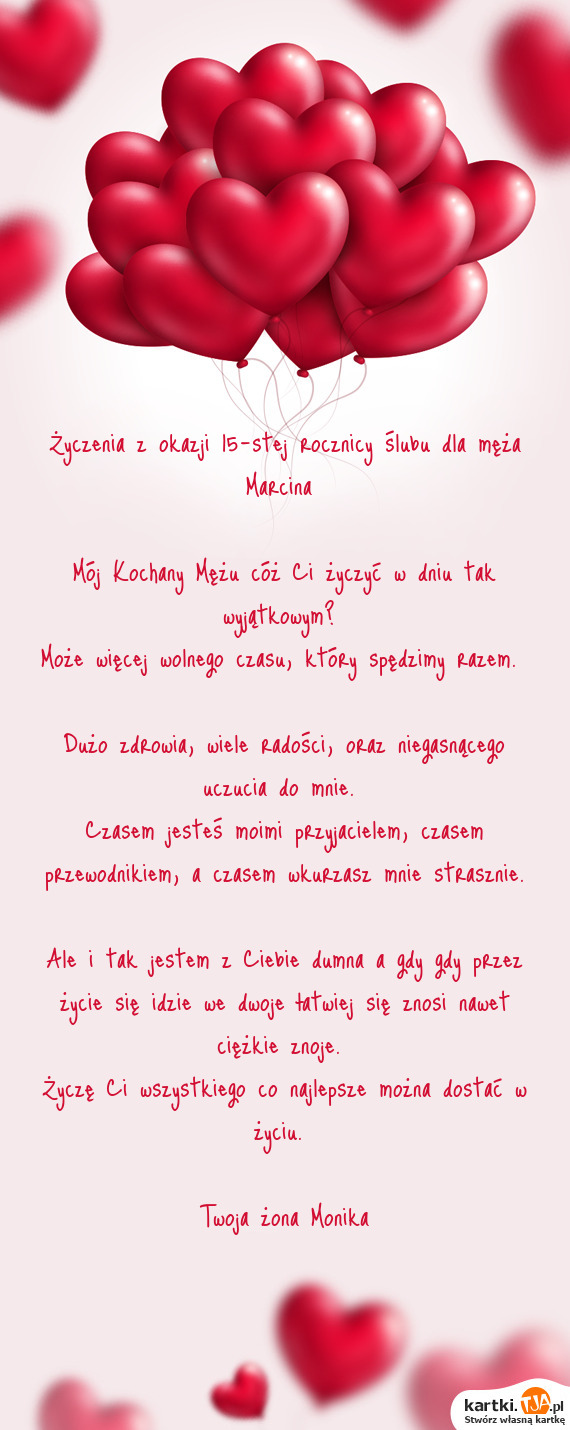 Życzenia z okazji 15-stej rocznicy ślubu dla męża
Marcina
Mój Kochany Mężu cóż Ci życzyć w dniu tak
wyjątkowym?
Może więcej wolnego czasu, który spędzimy razem.
Dużo zdrowia, wiele radości, oraz niegasnącego
uczucia do mnie.
Czasem jesteś moimi przyjacielem, czasem
przewodnikiem, a czasem wkurzasz mnie strasznie.
Ale i tak jestem z Ciebie dumna a gdy gdy przez
życie się idzie we dwoje łatwiej się znosi nawet
ciężkie znoje.
Życzę Ci wszystkiego co najlepsze można dostać w
życiu.
Twoja żona Monika
kartki.TJA.pl
Stwórz własną kartkę